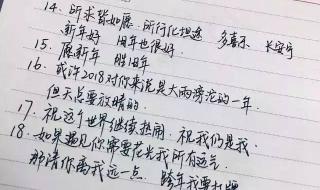 14. 所求皆如愿. 所行化坦途 多喜乐 长安宁
新年好 旧年也很好
15. 愿新年 胜旧年
16. 或许2018对你来说是大雨滂沱的一年.
但天总要放晴的.
17. 祝这个世界继续热闹. 祝我们是我
18. 如果遇见你需要花光我所有运气
那请你离我远一点. 跨年我要打牌